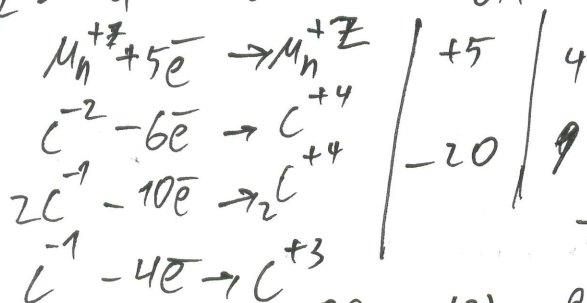 Mn⁺⁷ + 5e̅ → Mn⁺² | +5 | 4
C⁻² − 6e̅ → C⁺⁴
2C⁻¹ − 10e̅ → 2C⁺⁴ | −20
C⁻¹ − 4e̅ → C⁺³